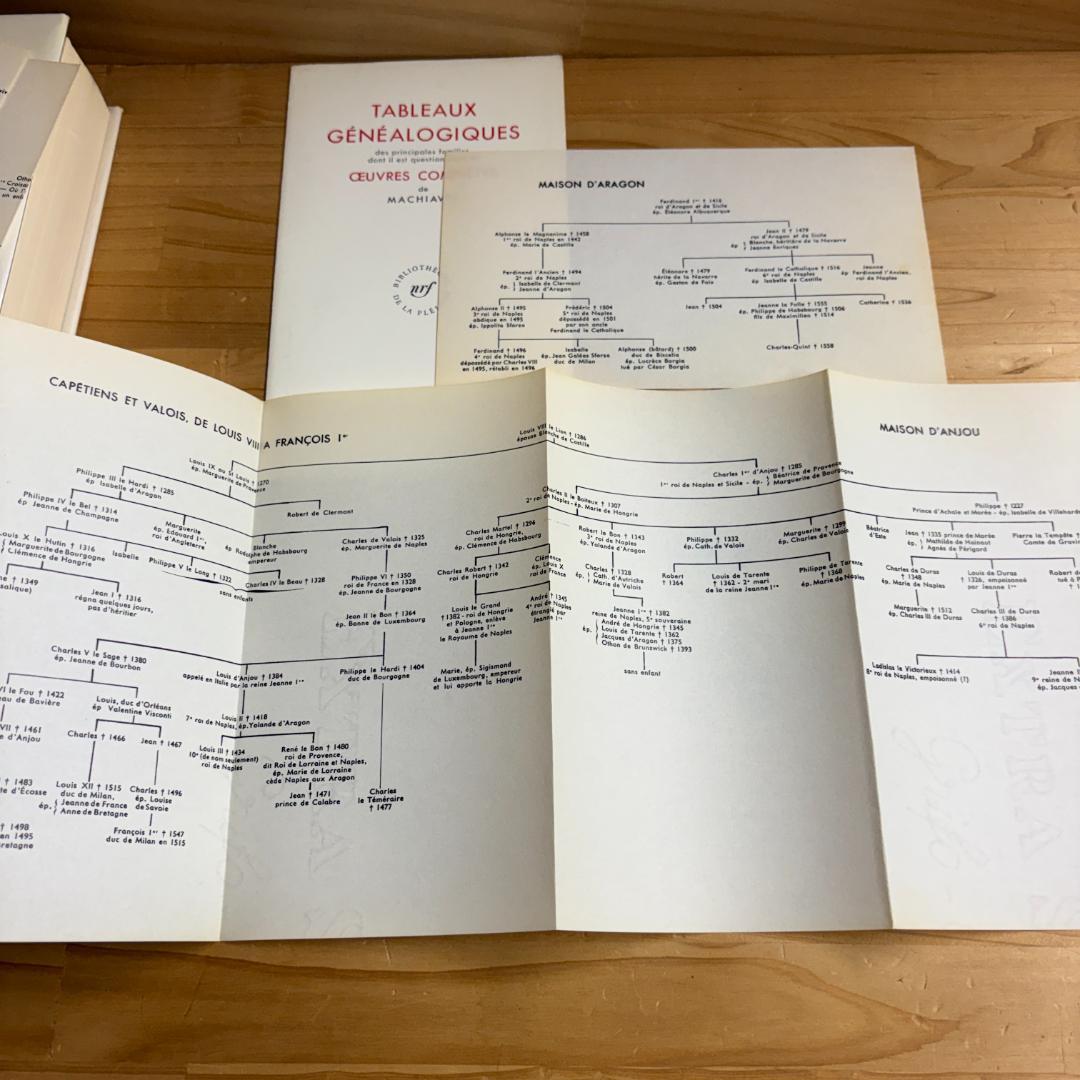 TABLEAUX
GÉNÉALOGIQUES
des principales familles
dont il est question
ŒUVRES COM
de
MACHIAV
BIBLIOTHÈ
nrf
DE LA PLÉ
MAISON D'ARAGON
Ferdinand 1er † 1416
roi d'Aragon et de Sicile
ép. Éléonore Albuquerque
Alphonse le Magnanime † 1458
1er roi de Naples en 1442
ép. Marie de Castille
Jean II † 1479
roi d'Aragon et de Sicile
ép { Blanche, héritière de la Navarre
Jeanne Enriques
Ferdinand l'Ancien † 1494
2e roi de Naples
ép. { Isabelle de Clermont
Jeanne d'Aragon
Éléonore † 1479
hérite de la Navarre
ép. Gaston de Foix
Ferdinand le Catholique † 1516
6e roi de Naples
ép Isabelle de Castille
Jeanne
ép Ferdinand l'Ancien,
roi de Naples
Alphonse II † 1495
3e roi de Naples
abdique en 1495
ép. Ippolita Sforza
Frédéric † 1504
5e roi de Naples
dépossédé en 1501
par son oncle
Ferdinand le Catholique
Jean † 1504
Jeanne la Folle † 1555
ép. Philippe de Habsbourg † 1506
fils de Maximilien † 1514
Catherine † 1536
Ferdinand † 1496
4e roi de Naples
dépossédé par Charles VIII
en 1495, rétabli en 1496
Isabelle
ép. Jean Galéas Sforza
duc de Milan
Alphonse (bâtard) † 1500
duc de Biscelia
ép. Lucrèce Borgia
tué par César Borgia
Charles-Quint † 1558
CAPÉTIENS ET VALOIS, DE LOUIS VIII A FRANÇOIS 1er
MAISON D'ANJOU
Louis VIII le Lion † 1286
épouse Blanche de Castille
Louis IX ou St Louis † 1270
ép. Marguerite de Provence
Charles 1er d'Anjou † 1285
1er roi de Naples et Sicile - ép. { Béatrice de Provence
Marguerite de Bourgogne
Philippe III le Hardi † 1285
ép Isabelle d'Aragon
Robert de Clermont
Charles II le Boiteux † 1307
2e roi de Naples - ép. Marie de Hongrie
Philippe † 1227
Prince d'Achaïe et Morée - ép. Isabelle de Villehardo
Philippe IV le Bel † 1314
ép Jeanne de Champagne
Marguerite
ép. Édouard 1er,
roi d'Angleterre
Blanche
ép Rodolphe de Habsbourg
empereur
Charles de Valois † 1325
ép. Marguerite de Naples
Charles Martel † 1296
roi de Hongrie,
ép. Clémence de Habsbourg
Robert le Bon † 1343
3e roi de Naples
ép. Yolande d'Aragon
Philippe † 1332
ép. Cath. de Valois
Marguerite † 1299
ép. Charles de Valois
Béatrice
d'Este
Jean † 1335 prince de Morée
ép. { Mathilde de Hainaut
Agnès de Périgord
Pierre la Tempête †
Comte de Gravin
X le Hutin † 1316
Marguerite de Bourgogne
Clémence de Hongrie
Isabelle
Philippe V le Long † 1322
Charles IV le Beau † 1328
sans enfants
Philippe VI † 1350
roi de France en 1328
ép. Jeanne de Bourgogne
Charles Robert † 1342
roi de Hongrie
Clémence
ép. Louis X
roi de France
Charles † 1328
ép. { Cath. d'Autriche
Marie de Valois
Robert
† 1364
Louis de Tarente
† 1362 - 2e mari
de la reine Jeanne 1re
Philippe de Tarente
† 1368
ép. Marie de Naples
Charles de Duras
† 1348
ép. Marie de Naples
Louis de Duras
† 1326, empoisonné
par Jeanne 1re
Robert de
tué à
ne † 1349
salique)
Jean 1 † 1316
régna quelques jours,
pas d'héritier
Jean II le Bon † 1364
ép. Bonne de Luxembourg
Louis le Grand
† 1382 - roi de Hongrie
et Pologne, enlève
à Jeanne 1re
le Royaume de Naples
André † 1345
4e roi de Naples
étranglé par
Jeanne 1re
Jeanne 1re † 1382
reine de Naples, 5e souveraine
ép. { André de Hongrie † 1345
Louis de Tarente † 1362
Jacques d'Aragon † 1375
Othon de Brunswick † 1393
Marguerite † 1512
ép. Charles III de Duras
Charles III de Duras
† 1386
6e roi de Naples
Charles V le Sage † 1380
ép. Jeanne de Bourbon
Louis d'Anjou † 1384
appelé en Italie par la reine Jeanne 1re
Philippe le Hardi † 1404
duc de Bourgogne
Marie, ép. Sigismond
de Luxembourg, empereur
et lui apporte la Hongrie
sans enfant
Ladislas le Victorieux † 1414
8e roi de Naples, empoisonné (?)
Jeanne I
9e reine de N
ép. Jacques
VI le Fou † 1422
eau de Bavière
Louis, duc d'Orléans
ép Valentine Visconti
Louis II † 1418
7e roi de Naples, ép. Yolande d'Aragon
VII † 1461
e d'Anjou
Charles † 1466
Jean † 1467
Louis III † 1434
10e (de nom seulement)
roi de Naples
René le Bon † 1480
roi de Provence,
dit Roi de Lorraine et Naples,
ép. Marie de Lorraine
cède Naples aux Aragon
† 1483
te d'Écosse
Louis XII † 1515
duc de Milan,
ép. { Jeanne de France
Anne de Bretagne
Charles † 1496
ép. Louise
de Savoie
Jean † 1471
prince de Calabre
Charles
le Téméraire
† 1477
† 1498
en 1495
retagne
François 1er † 1547
duc de Milan en 1515